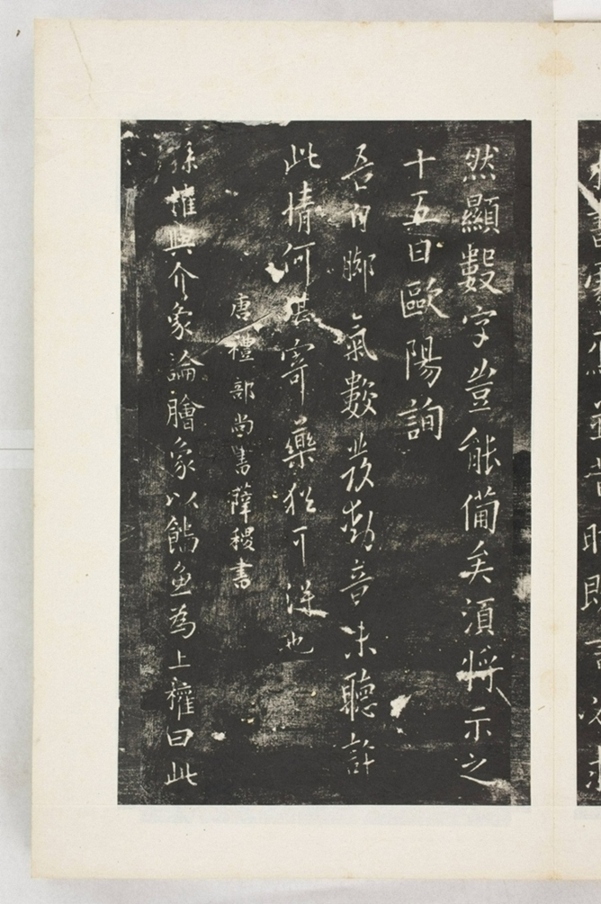 然顯數字豈能備矣須將示之
十五日歐陽詢
吾自腳氣數發動竟未聽許
此情何堪寄藥猶可進也
唐禮部尚書薛稷書
孫權與介象論膾象以鯔魚為上權曰此